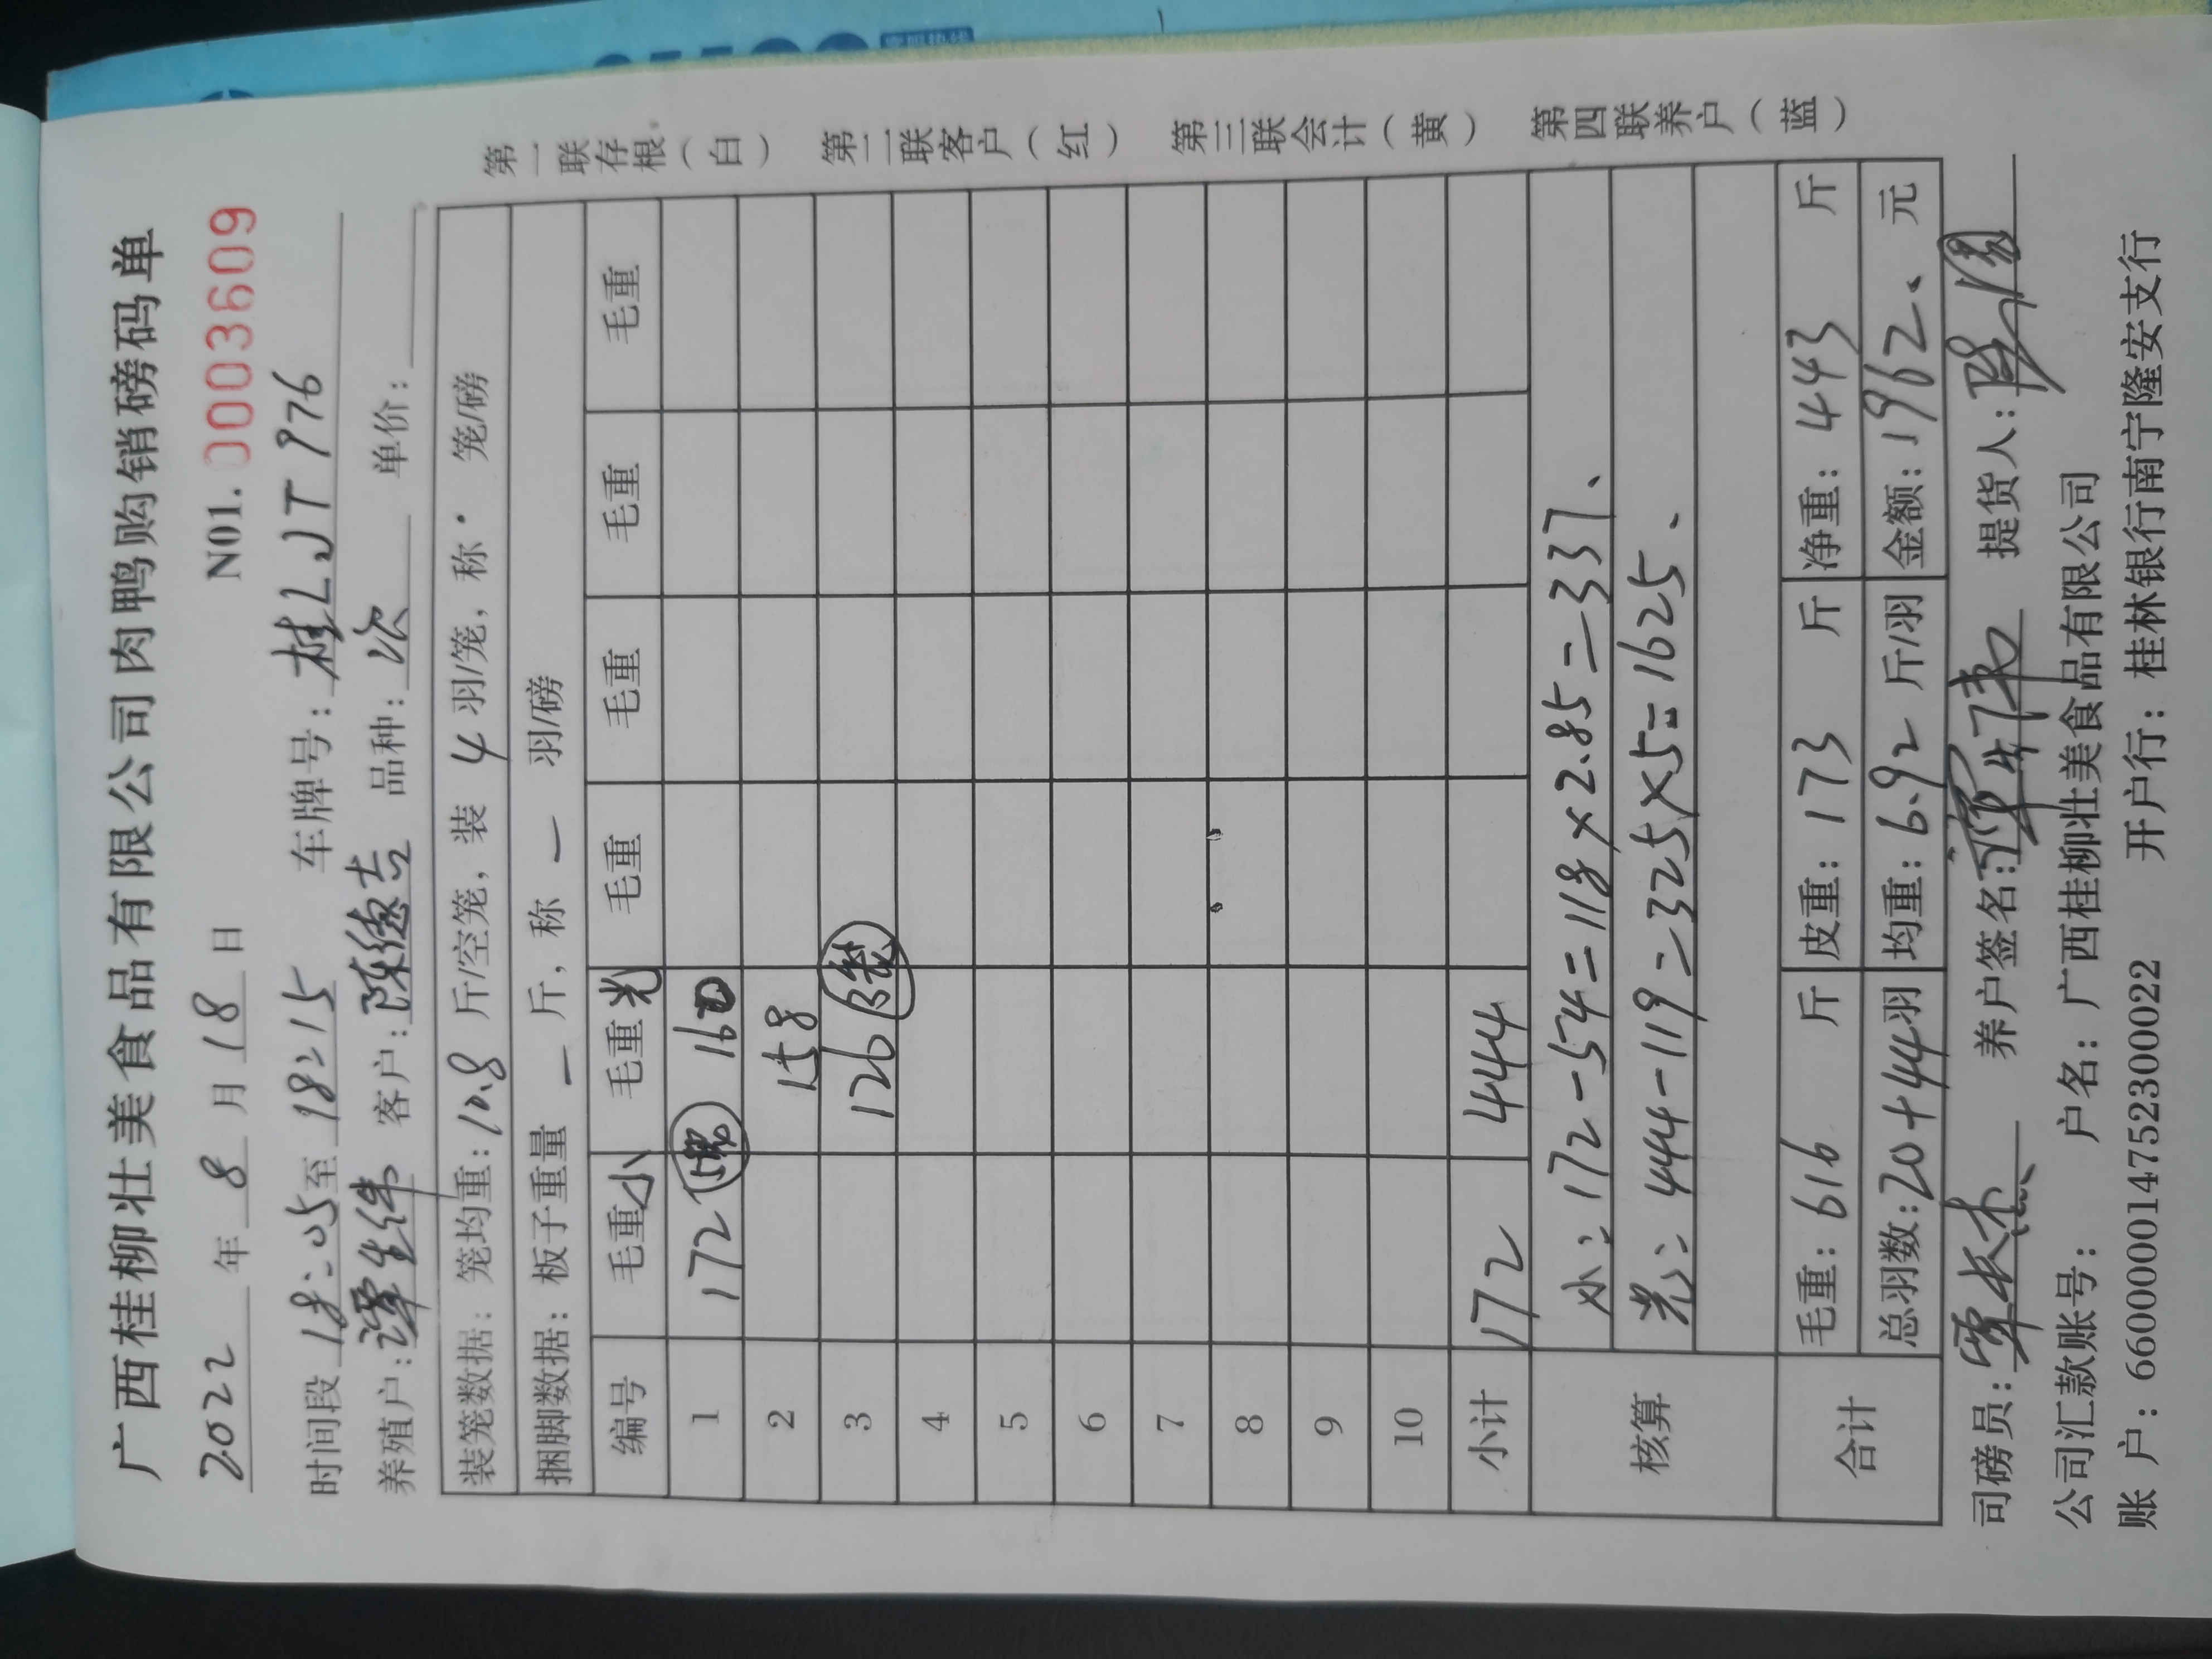 广西桂柳壮美食品有限公司肉鸭购销磅码单
2022年8月18日 N01.0003609
时间段18:05至18:15 车牌号:桂LJT976
养殖户:谭生伟 客户:陈德吉 品种:次 单价:
装笼数据:笼均重:10.8斤/空笼,装4羽/笼,称·笼/磅
捆脚数据:板子重量—斤,称—羽/磅
编号 毛重小 毛重光 毛重 毛重 毛重 毛重
1 172 160
2 158
3 126
4
5
6
7
8
9
10
小计 172 444
核算 小:172-54=118×2.85=337、
光:444-119=325×5=1625、
合计 毛重:616斤 皮重:173斤 净重:443斤
总羽数:20+44羽 均重:6.92斤/羽 金额:1962、元
司磅员: 养户签名: 提货人:
公司汇款账号: 户名:广西桂柳壮美食品有限公司
账户:660000014752300022 开户行:桂林银行南宁隆安支行
第一联存根(白) 第二联客户(红) 第三联会计(黄) 第四联养户(蓝)